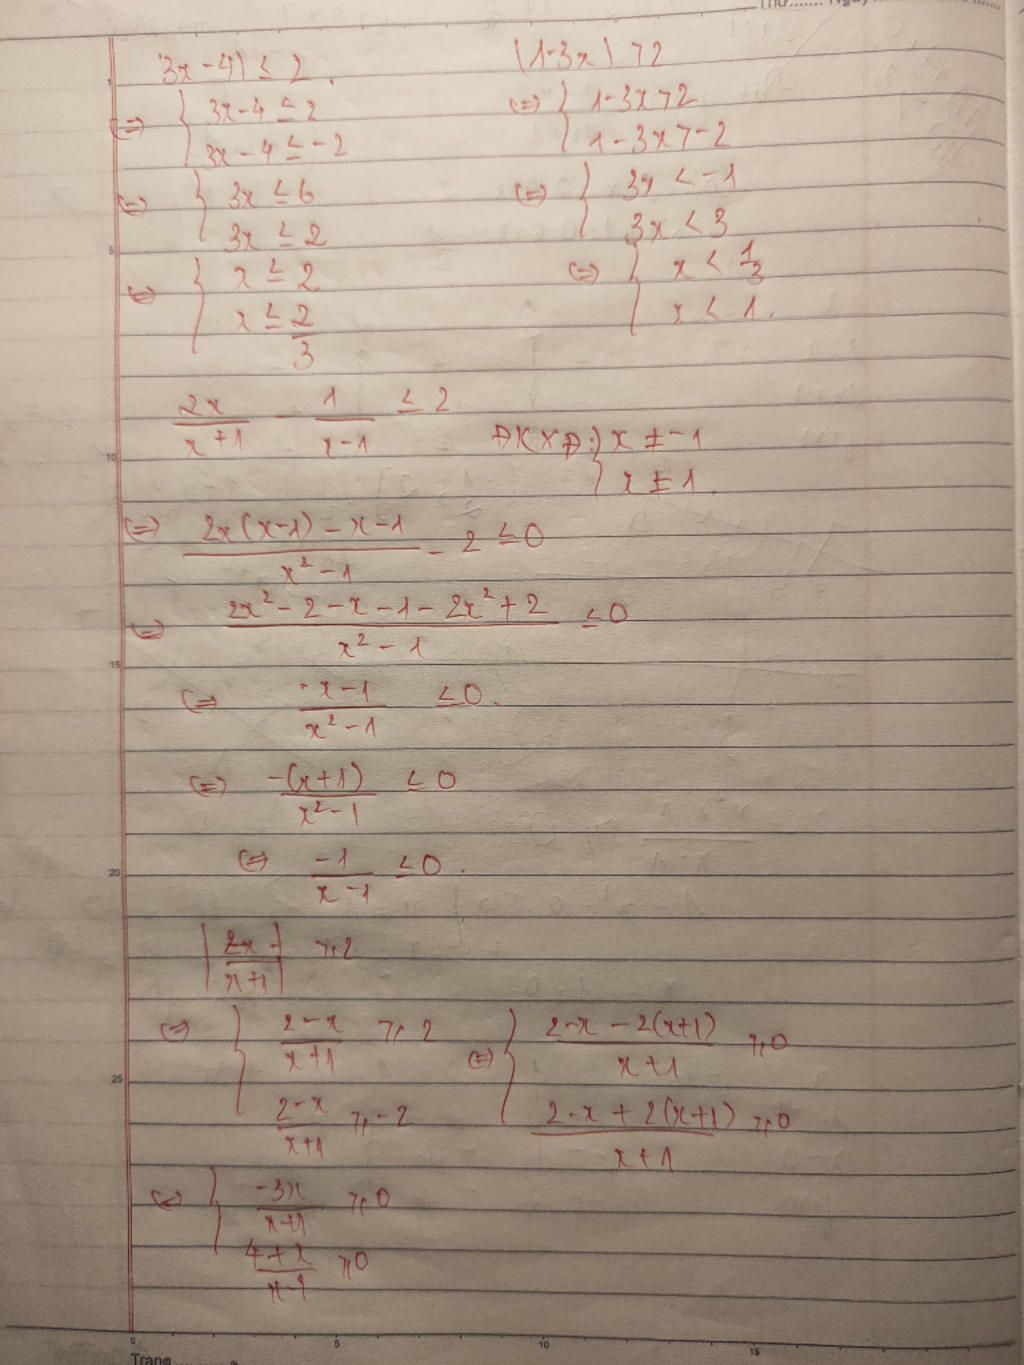 Thứ....... Ngày
|3x - 4| ≤ 2.
⇔ { 3x - 4 ≤ 2
3x - 4 ≤ -2
⇔ { 3x ≤ 6
3x ≤ 2
⇔ { x ≤ 2
x ≤ 2/3
|1-3x| > 2
⇔ { 1-3x > 2
1-3x > -2
⇔ { 3x < -1
3x < 3
⇔ { x < 1/3
x < 1.
2x/(x+1) - 1/(x-1) ≤ 2
ĐKXĐ: { x ≠ -1
x ≠ 1.
⇔ (2x(x-1) - x - 1)/(x² - 1) - 2 ≤ 0
⇔ (2x² - 2 - x - 1 - 2x² + 2)/(x² - 1) ≤ 0
⇔ (-x-1)/(x² - 1) ≤ 0.
⇔ -(x+1)/(x² - 1) ≤ 0
⇔ -1/(x-1) ≤ 0.
≥ 2
⇔ { (2-x)/(x+1) ≥ 2
(2-x)/(x+1) ≥ -2
⇔ { (2-x - 2(x+1))/(x+1) ≥ 0
(2-x + 2(x+1))/(x+1) ≥ 0
⇔ { -3x/(x+1) ≥ 0
(4+x)/(x-1) ≥ 0
5
10
15
20
25
0 5 10 15
Trang